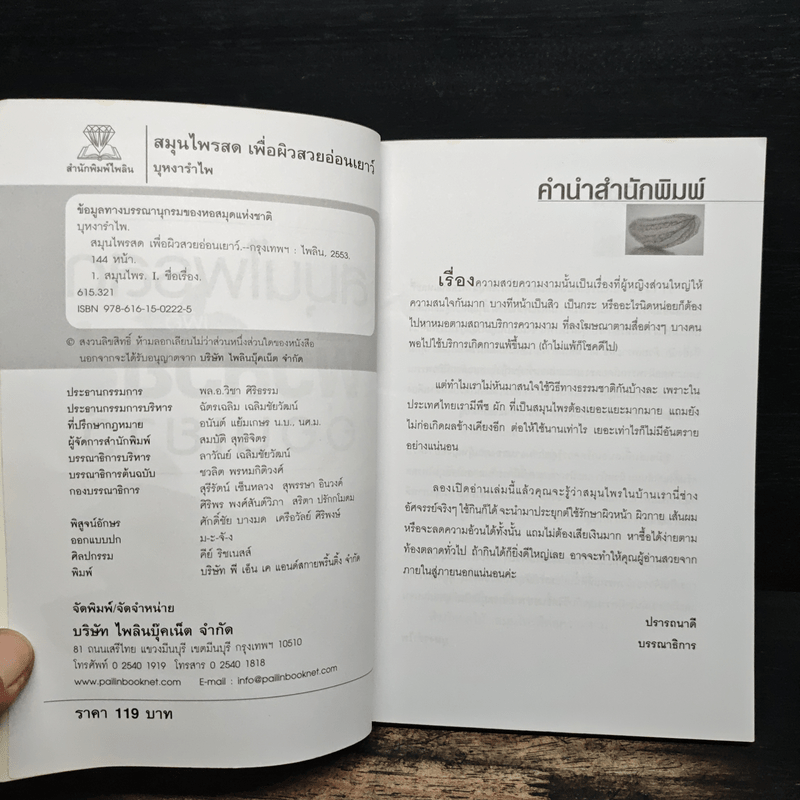 สำนักพิมพ์ไพลิน
สมุนไพรสด เพื่อผิวสวยอ่อนเยาว์
บุหงารำไพ
ข้อมูลทางบรรณานุกรมของหอสมุดแห่งชาติ
บุหงารำไพ.
สมุนไพรสด เพื่อผิวสวยอ่อนเยาว์.--กรุงเทพฯ : ไพลิน, 2553.
144 หน้า.
1. สมุนไพร. I. ชื่อเรื่อง.
615.321
ISBN 978-616-15-0222-5
© สงวนลิขสิทธิ์ ห้ามลอกเลียนไม่ว่าส่วนหนึ่งส่วนใดของหนังสือ
นอกจากจะได้รับอนุญาตจาก บริษัท ไพลินบุ๊คเน็ต จำกัด
ประธานกรรมการ พล.อ.วิชา ศิริธรรม
ประธานกรรมการบริหาร ฉัตรเฉลิม เฉลิมชัยวัฒน์
ที่ปรึกษากฎหมาย อนันต์ แย้มเกษร น.บ., นศ.ม.
ผู้จัดการสำนักพิมพ์ สมบัติ สุทธิจิตร
บรรณาธิการบริหาร ลาวัณย์ เฉลิมชัยวัฒน์
บรรณาธิการต้นฉบับ ชวลิต พรหมกิติวงศ์
กองบรรณาธิการ สุรีรัตน์ เซ็นหลวง สุพรรษา อินวงค์
ศิริพร พงศ์สันต์วิภา สริตา ปรักกโมดม
พิสูจน์อักษร ศักดิ์ชัย บางมด เครือวัลย์ ศิริพงษ์
ออกแบบปก ม-ะ-จั-ง
ศิลปกรรม คีย์ ริชเนสส์
พิมพ์ บริษัท พี เอ็น เค แอนด์สกายพริ้นติ้ง จำกัด
จัดพิมพ์/จัดจำหน่าย
บริษัท ไพลินบุ๊คเน็ต จำกัด
81 ถนนเสรีไทย แขวงมีนบุรี เขตมีนบุรี กรุงเทพฯ 10510
โทรศัพท์ 0 2540 1919 โทรสาร 0 2540 1818
www.pailinbooknet.com E-mail : info@pailinbooknet.com
ราคา 119 บาท
คำนำสำนักพิมพ์
เรื่องความสวยความงามนั้นเป็นเรื่องที่ผู้หญิงส่วนใหญ่ให้
ความสนใจกันมาก บางทีหน้าเป็นสิว เป็นกระ หรืออะไรนิดหน่อยก็ต้อง
ไปหาหมอตามสถานบริการความงาม ที่ลงโฆษณาตามสื่อต่างๆ บางคน
พอไปใช้บริการเกิดการแพ้ขึ้นมา (ถ้าไม่แพ้ก็โชคดีไป)
แต่ทำไมเราไม่หันมาสนใจใช้วิธีทางธรรมชาติกันบ้างละ เพราะใน
ประเทศไทยเรามีพืช ผัก ที่เป็นสมุนไพรต้องเยอะแยะมากมาย แถมยัง
ไม่ก่อเกิดผลข้างเคียงอีก ต่อให้ใช้นานเท่าไร เยอะเท่าไรก็ไม่มีอันตราย
อย่างแน่นอน
ลองเปิดอ่านเล่มนี้แล้วคุณจะรู้ว่าสมุนไพรในบ้านเรานี่ช่าง
อัศจรรย์จริงๆ ใช้กินก็ได้ จะนำมาประยุกต์ใช้รักษาผิวหน้า ผิวกาย เส้นผม
หรือจะลดความอ้วนได้ทั้งนั้น แถมไม่ต้องเสียเงินมาก หาซื้อได้ง่ายตาม
ท้องตลาดทั่วไป ถ้ากินได้ก็ยิ่งดีใหญ่เลย อาจจะทำให้คุณผู้อ่านสวยจาก
ภายในสู่ภายนอกแน่นอนค่ะ
ปรารถนาดี
บรรณาธิการ